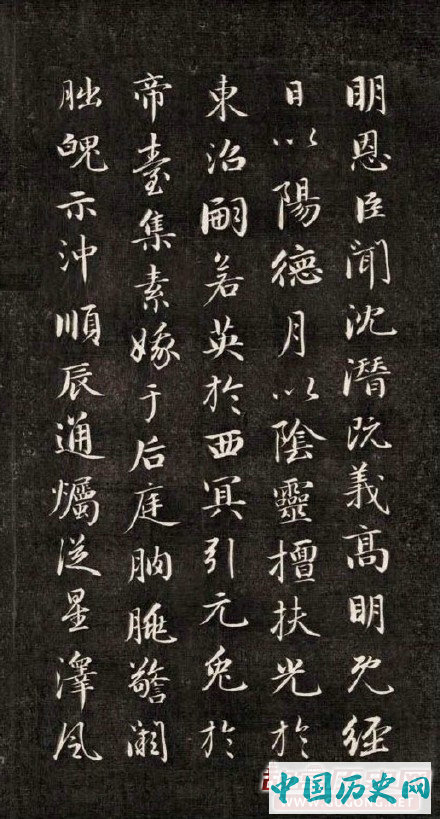 明恩臣聞沈潛既義高明既經
日以陽德月以陰靈擅扶光於
東沼嗣若英於西冥引元兔於
帝臺集素娥于后庭朒朓警闕
朏魄示沖順辰通爥從星澤風
中国历史网